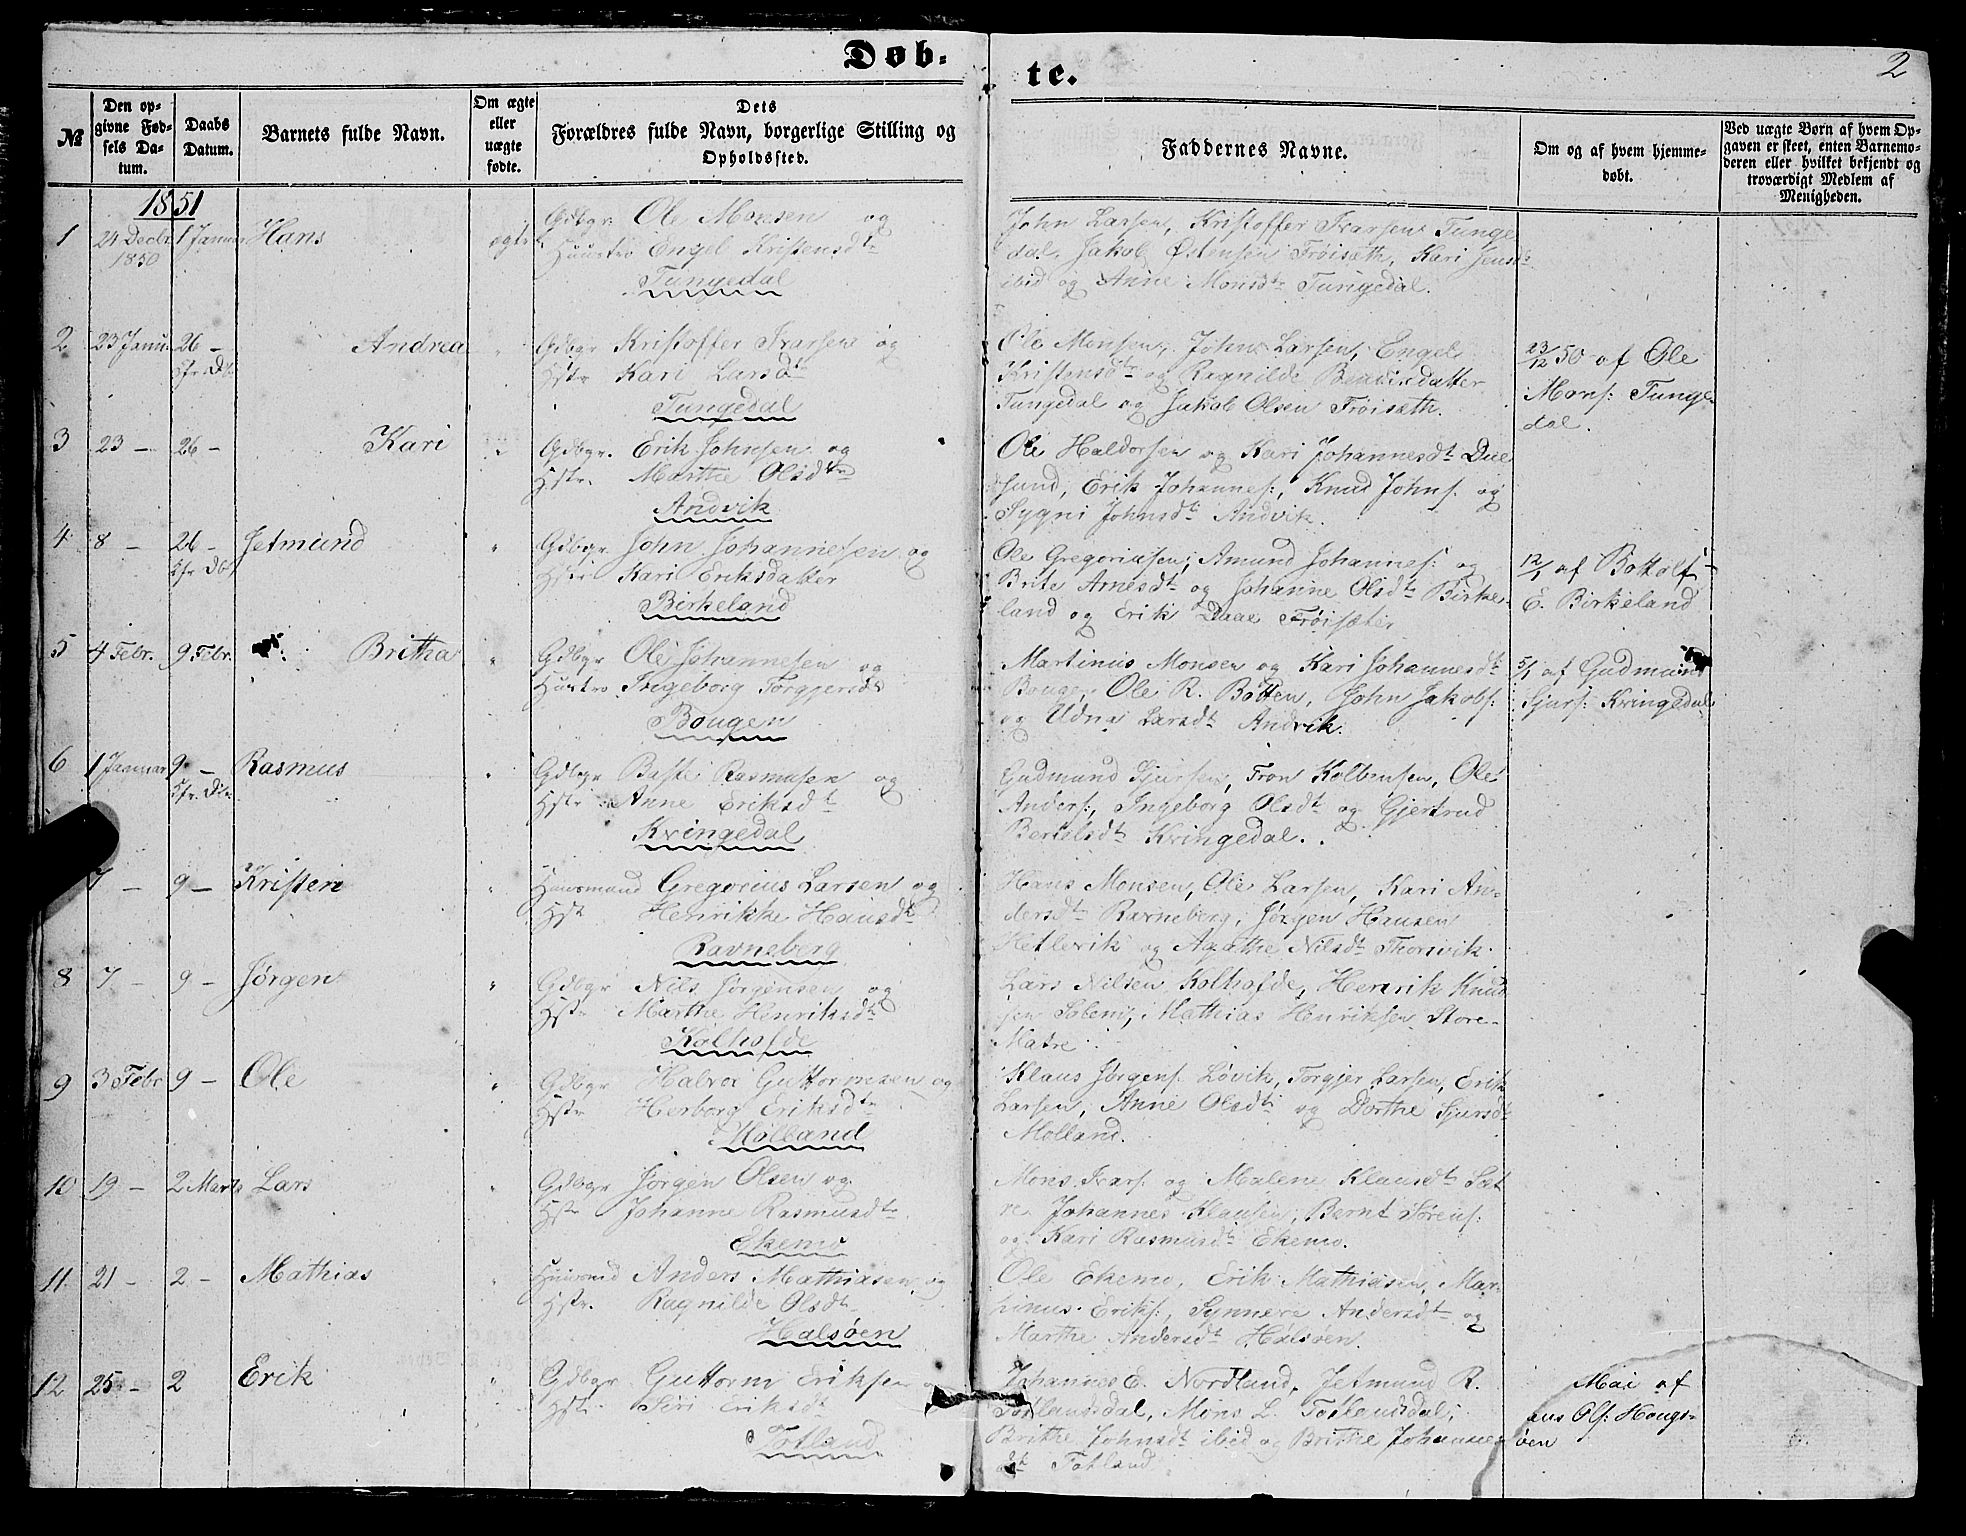 Døb-
te.
2
№
Den op-
givne Fød-
sels Da-
tum.
Daabs
Datum.
Barnets fulde Navn.
Om ægte
eller
uægte
fødte.
Dets
Forældres fulde Navn, borgerlige Stilling og
Opholdssted.
Faddernes Navne.
Om og af hvem hjemme-
døbt.
Ved uægte Børn af hvem Op-
gaven er skeet, enten Barnemo-
deren eller hvilket bekjendt og
troværdigt Medlem af
Menigheden.
1851
1 24 Decbr 1 Januar Hans ægte Gdbgr. Ole Monsen og
1850
Huustro Engel Kristensdtr
Tungedal
John Larsen, Kristoffer Ivarsen Tunge
dal, Jakob Østensen Frøisæth, Kari Jensdtr
ibid og Anne Monsdtr Tungedal.
2 23 Janu. 26 - Andrea " Gdbgr Kristoffer Ivarsen og
Hstr Kari Larsdtr
Tungedal
Ole Monsen, John Larsen, Engel
Kristensdtr og Ragnilde Bendixdatter
Tungedal og Jakob Olsen Frøisæth.
23/12 50 af Ole
Mons: Tunge-
dal.
3 23 - 26 - Kari Gdbgr. Erik Johnsen og
Hstr. Marthe Olsdtr
Andvik
Ole Haldorsen og Kari Johannesdtr Due
sund, Erik Johannes:, Knud Johns: og
Sygni Johnsdtr Andvik.
4 8 - 26 - Jetmund " Gdbgr. John Johannesen og
Hstr Kari Eriksdatter
Birkeland
Ole Gregoriusen, Amund Johannes: og
Brite Arnesdtr og Johanne Olsdtr Birke-
land og Erik Daae Frøisæter
12/1 af Bottolf
E. Birkeland
5 4 Febr. 9 Febr. Britha " Gdbgr Ole Johannesen og
Huustro Ingeborg Torgjersdtr
Bougen
Martinus Monsen og Kari Johannesdtr
Bouge, Ole R. Botten, John Jakobs:
og Udna Larsdtr Andvik.
5/1 af Gudmund
Sjurs: Kvingedal
6 1 Januar 9 - Rasmus " Gdbgr Baste Rasmusen og
Hstr Anne Eriksdtr
Kvingedal
Gudmund Sjursen, Tron Kolbensen, Ole
Anders:, Ingeborg Olsdtr og Gjertrud
Bertelsdtr Kvingedal.
7 - 9 - Kristen " Huusmand Gregorius Larsen og
Hst Henrikke Hansdtr
Ravneberg
Hans Monsen, Ole Larsen, Kari An-
dersdtr Ravneberg, Jørgen Hansen
Hetlevik og Agathe Nilsdtr Thorsvik.
8 7 - 9 - Jørgen " Gdbgr Nils Jørgensen og
Hstr Marthe Henriksdtr
Kolhofde
Lars Nilsen Kolhofde, Henrik Knud
sen Solem, Mathias Henriksen Store-
Matre
9 3 Febr 9 - Ole " Gdbgr Halvor Guttormsen og
Hstr Herborg Eriksdtr
Molland
Klaus Jørgens: Løvik, Torgjer Larsen, Erik
Larsen, Anne Olsdtr og Dorthe Sjursdtr
Molland.
10 19 - 2 Marts Lars " Gdbgr Jørgen Olsen og
Hstr Johanne Rasmusdtr
Ekemo
Mons Ivars: og Malene Klausdtr Sæt
re Johannes Klausen, Bernt Sørens:
og Kari Rasmusdtr Ekemo.
11 21 - 2 - Mathias " Huusmd Anders Mathiasen og
Hstr. Ragnilde Olsdtr
Halsøen
Ole Ekemo, Erik Mathiasen, Mar-
tinus Eriks:, Synneve Andersdtr og
Marthe Andersdtr Halsøen.
12 25 - 2 Erik " Gdbgr Guttorm Eriksen
Hstr Siri Eriksdtr
Totland
Johannes E. Nordland, Jetmund R.
Totlandsdal, Mons L. Totlandsdal,
Brithe Johnsdtr ibid og Brithe Johannes-
dtr Totland
Mai af
Ols: Hougs-
øen